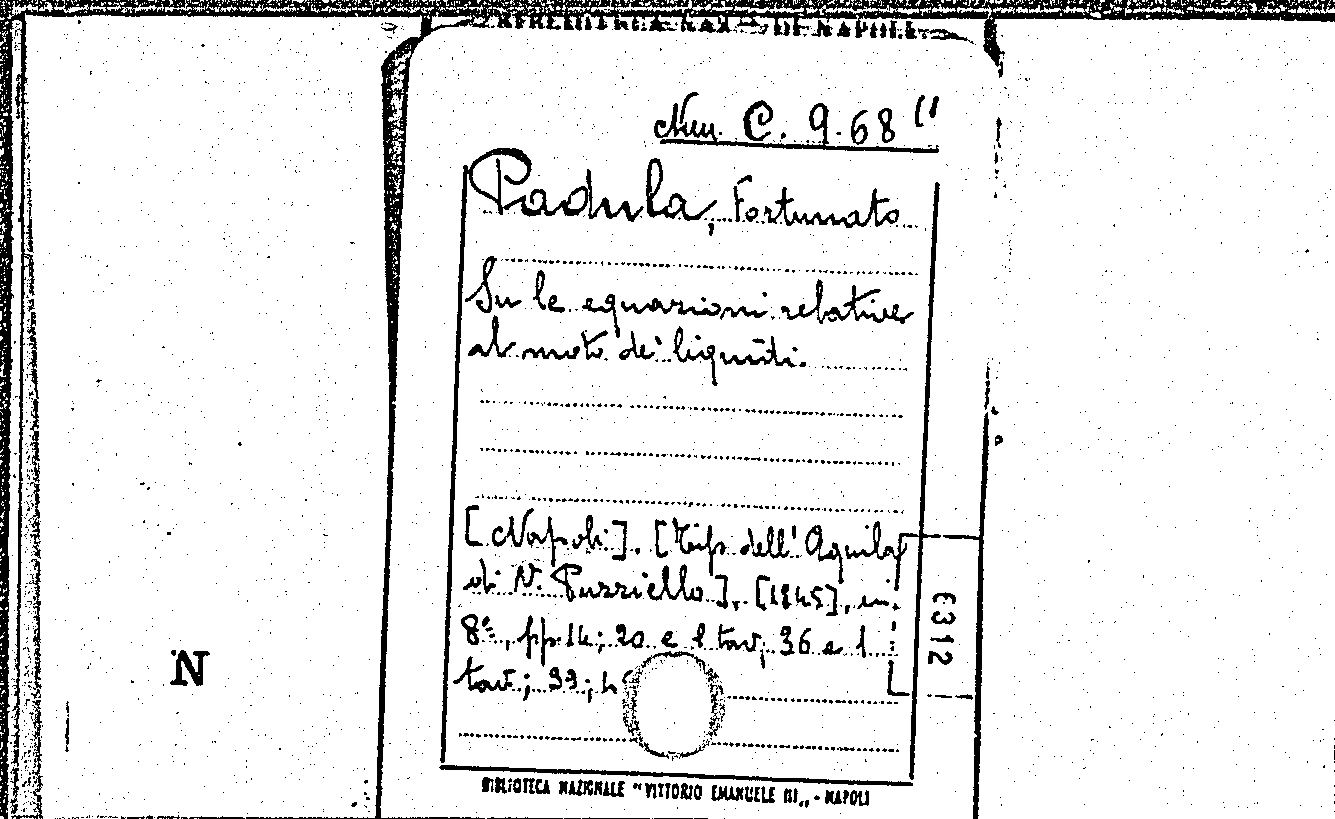 DI NAPOLI
C. 9.68
Padula, Fortunato
Su le equazioni relative
al moto dei liquidi.
[Napoli]. [Tip dell'Aquila
di N. Puzziello]. [1845], in
8°, pp. 14; 20 e 1 tav; 36 e 1
tav.; 33;
E312
N
BIBLIOTECA NAZIONALE "VITTORIO EMANUELE III" - NAPOLI